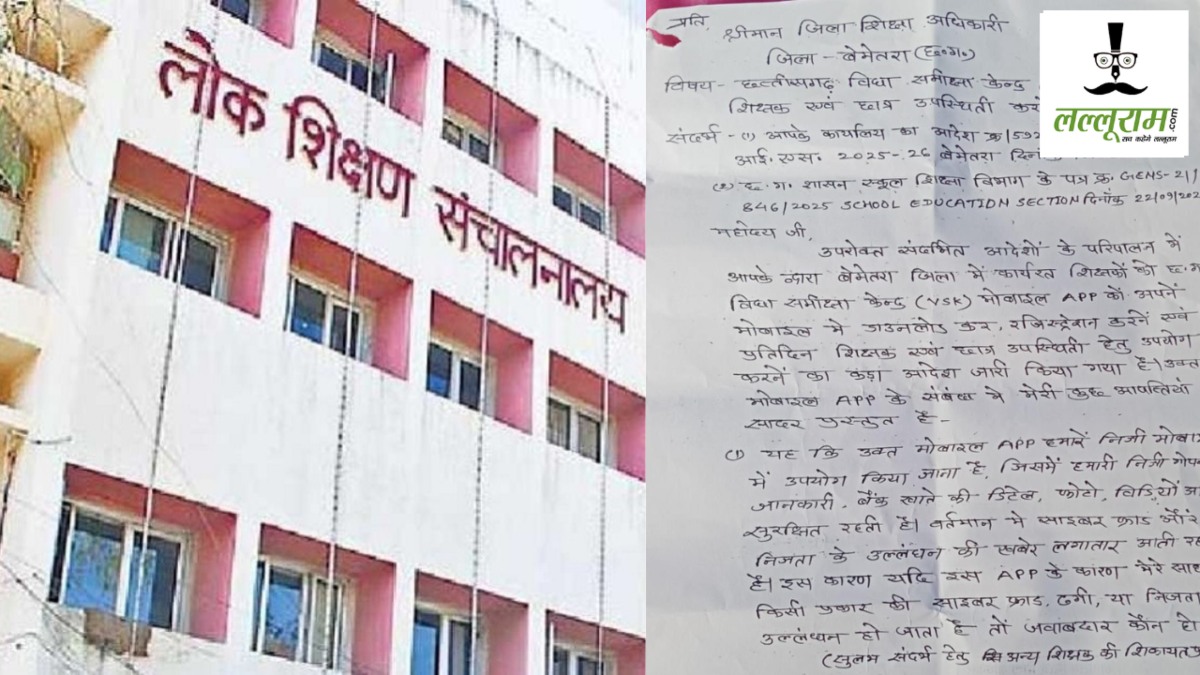 लोक शिक्षण संचालनालय
प्रति,
श्रीमान जिला शिक्षा अधिकारी
जिला - बेमेतरा (छ०ग०)
विषय - छत्तीसगढ़ विद्या समीक्षा केन्द्र
शिक्षक एवं छात्र उपस्थिती
संदर्भ - (1) आपके कार्यालय का आदेश क्र
आई. एस. 2025-26 बेमेतरा
(2) छ.ग. शासन स्कूल शिक्षा विभाग के पत्र क्र. GENS-21/
846/2025 SCHOOL EDUCATION SECTION दिनाँक 22/09/202
महोदय जी,
उपरोक्त संदर्भित आदेशों के परिपालन में
आपके द्वारा बेमेतरा जिला में कार्यरत शिक्षकों को छ.ग
विद्या समीक्षा केन्द्र (VSK) मोबाइल APP को अपने
मोबाइल में डाउनलोड कर, रजिस्ट्रेशन करने एवं
प्रतिदिन शिक्षक एवं छात्र उपस्थिती हेतु उपयोग
करने का कड़ा आदेश जारी किया गया है। उक्त
मोबाइल APP के संबंध में मेरी कुछ आपत्तियां
सादर प्रस्तुत है -
(1) यह कि उक्त मोबाइल APP हमारे निजी
में उपयोग किया जाना है, जिसमें हमारी निजी
जानकारी, बैंक खाते की डिटेल, फोटो, विडियों
सुरक्षित रहती है। वर्तमान में साइबर फ्राड और
निजता के उल्लंघन की खबरे लगातार आती
है। इस कारण यदि इस APP के कारण मेरे
किसी प्रकार की साइबर फ्राड, ठगी, या निजता
उल्लंघन हो जाता है तो जवाबदार कौन
(सुलभ संदर्भ हेतु अन्य शिक्षक की
लल्लूराम.com
सच कहेंगे लल्लूराम